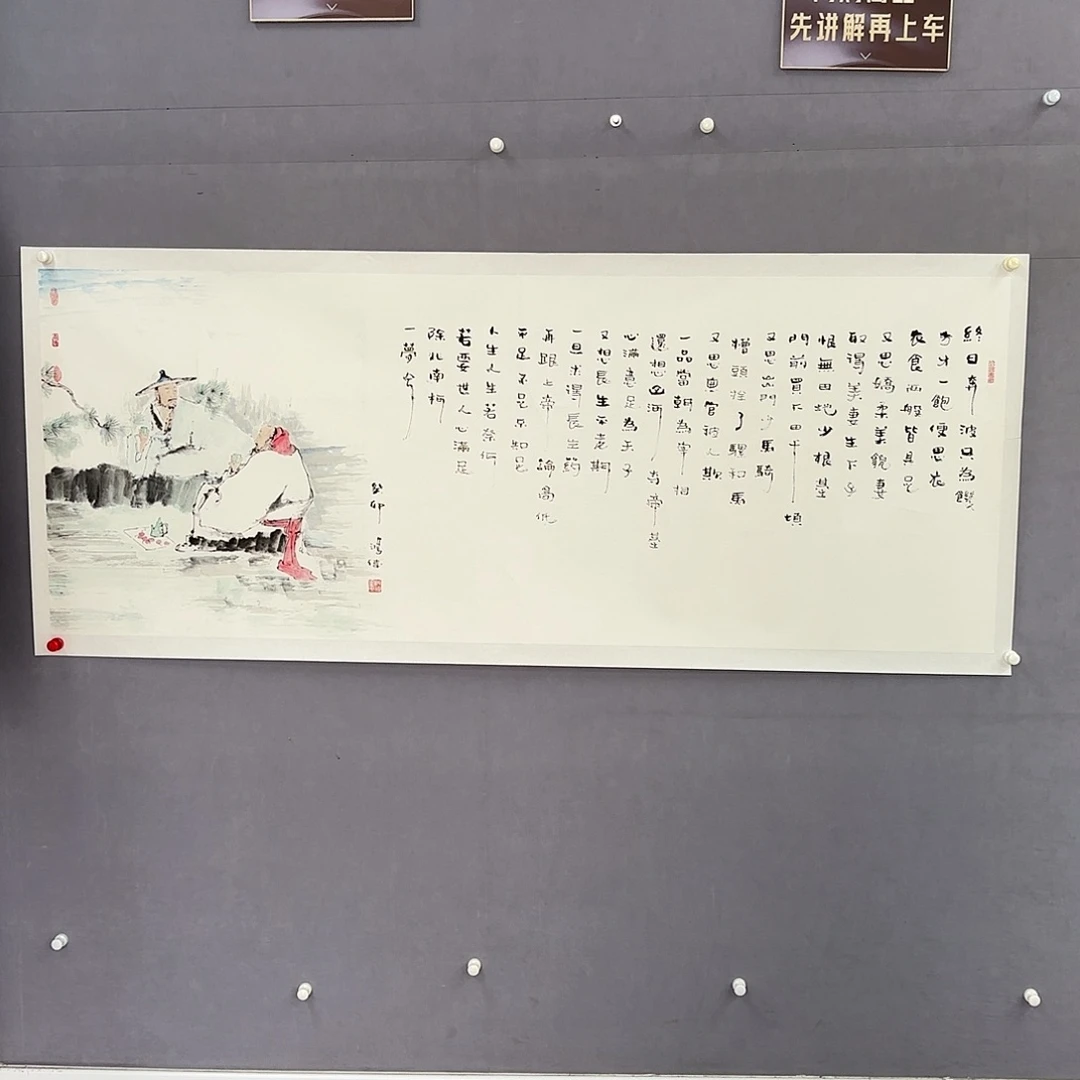 先讲解再上车
終日奔波只為饑
才一飽便思衣
衣食兩般皆具足
又思嬌柔美貌妻
取得美妻生下子
恨無田地少根基
門前買下田千頃
又思出門少馬騎
槽頭拴了騾和馬
又思無官被人欺
一品當朝為宰相
還想山河奪帝基
心滿意足為天子
又想長生不老期
一旦求得長生藥
再跟上帝論高低
不足不足不知足
人生人生若奈何
若要世人心滿足
除非南柯
一夢兮
癸卯